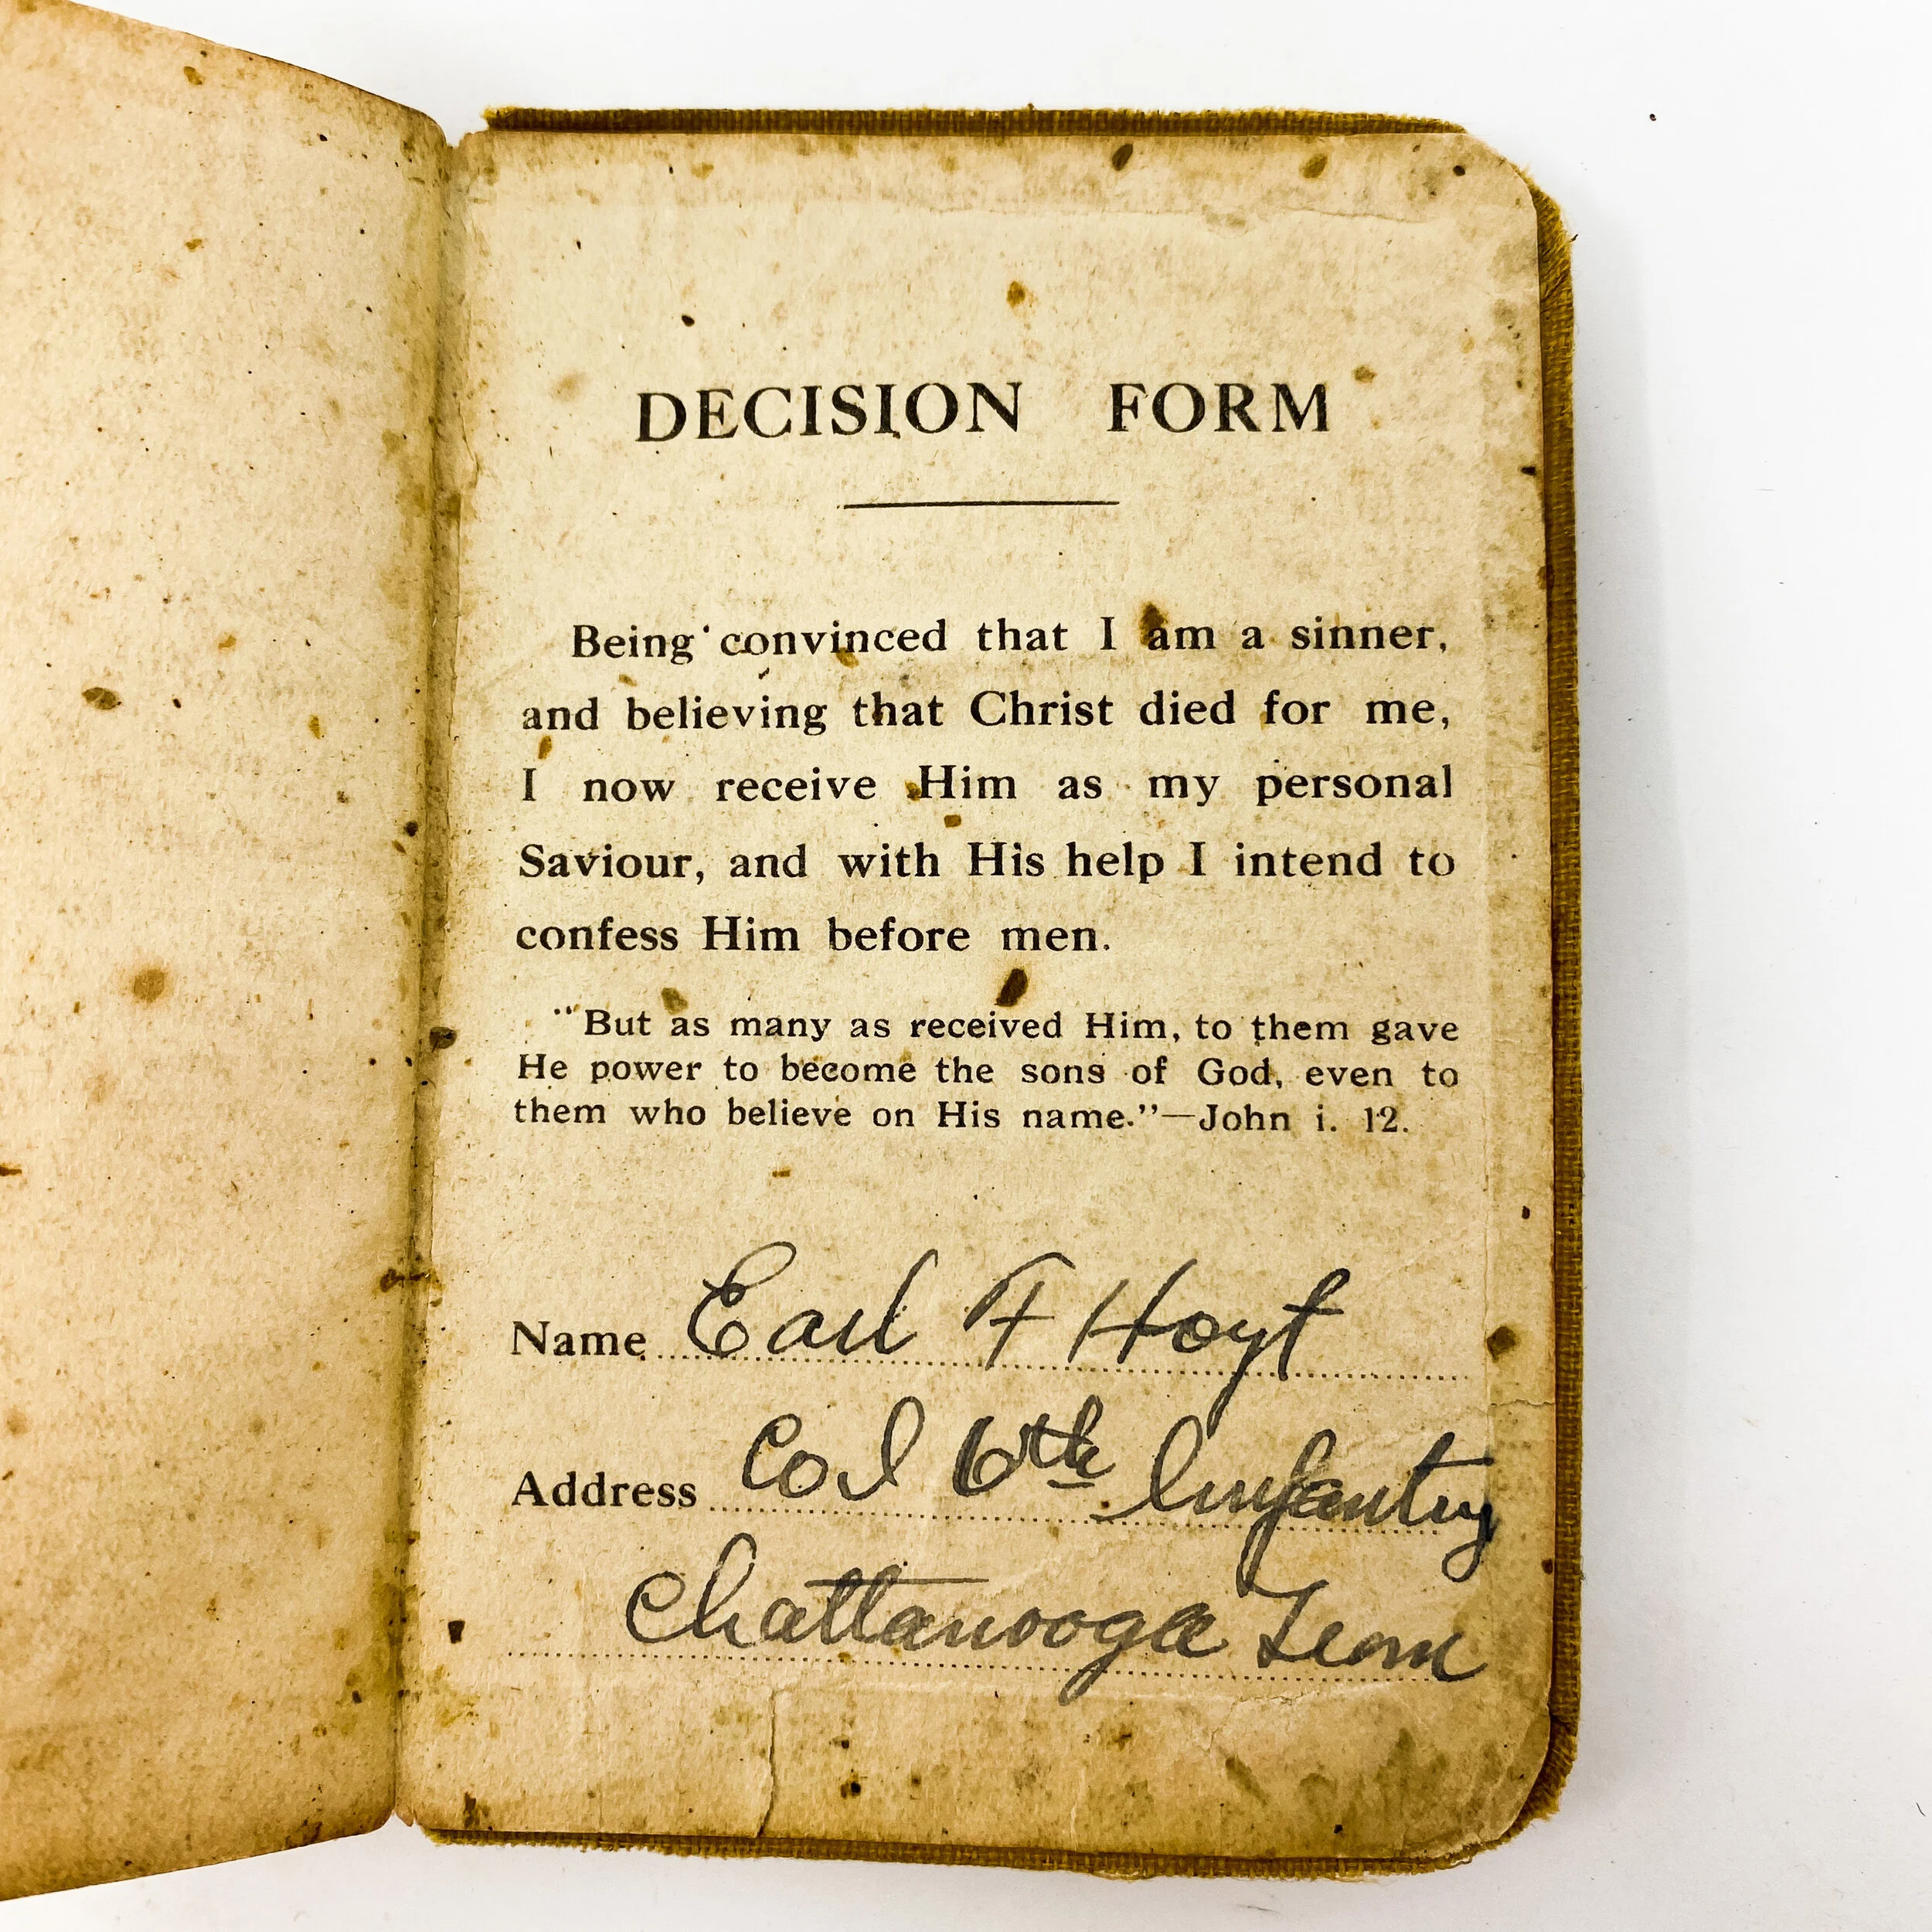 DECISION FORM
Being convinced that I am a sinner,
and believing that Christ died for me,
I now receive Him as my personal
Saviour, and with His help I intend to
confess Him before men.
"But as many as received Him, to them gave
He power to become the sons of God, even to
them who believe on His name."—John i. 12.
Name Earl F Hoyt
Address Co I 6th Infantry
Chattanooga Tenn